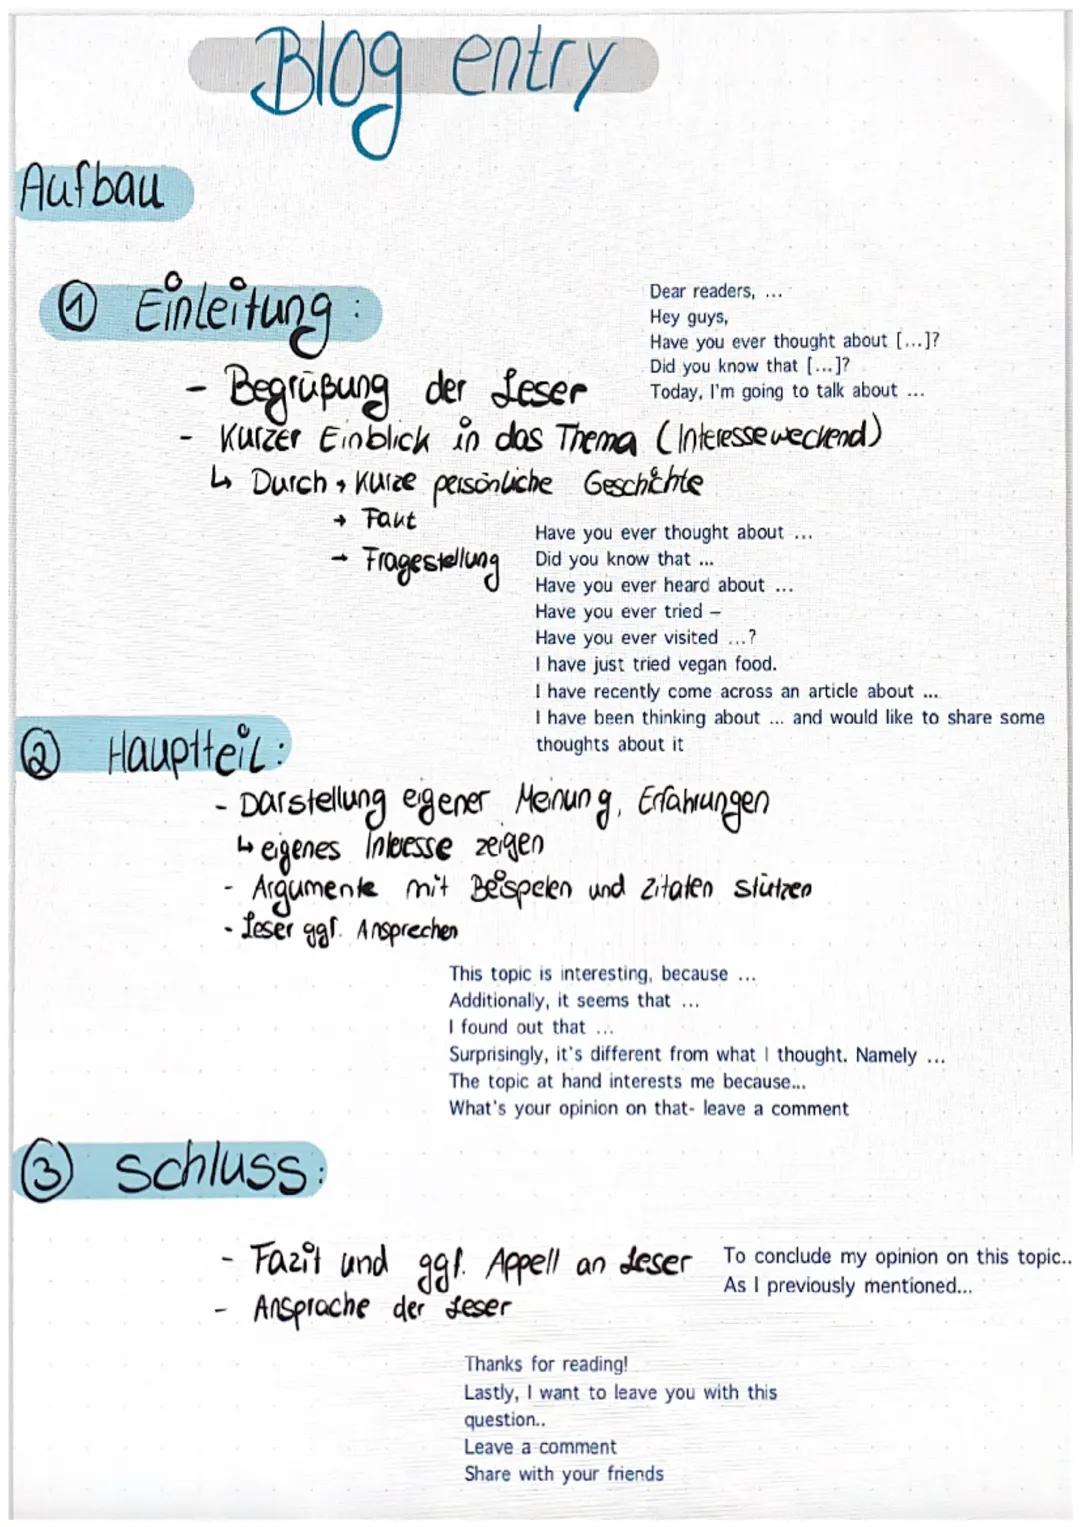 Blog entry
Aufbau
① Einleitung:
Dear readers, ...
Hey guys,
Have you ever thought about [...]?
Did you know that [...]?
Today, I'm going to talk about ...
- Begrüßung der Leser
- Kurzer Einblick in das Thema (Interesse weckend)
↳ Durch → Kurze persönliche Geschichte
→ Fakt
→ Fragestellung
Have you ever thought about ...
Did you know that ...
Have you ever heard about ...
Have you ever tried –
Have you ever visited ...?
I have just tried vegan food.
I have recently come across an article about ...
I have been thinking about ... and would like to share some
thoughts about it
② Hauptteil:
- Darstellung eigener Meinung, Erfahrungen
↳ eigenes Interesse zeigen
- Argumente mit Beispelen und Zitaten stützen
- Leser ggf. Ansprechen
This topic is interesting, because ...
Additionally, it seems that ...
I found out that ...
Surprisingly, it's different from what I thought. Namely ...
The topic at hand interests me because...
What's your opinion on that- leave a comment
③ Schluss:
- Fazit und ggf. Appell an Leser
To conclude my opinion on this topic..
As I previously mentioned...
- Ansprache der Leser
Thanks for reading!
Lastly, I want to leave you with this
question..
Leave a comment
Share with your friends